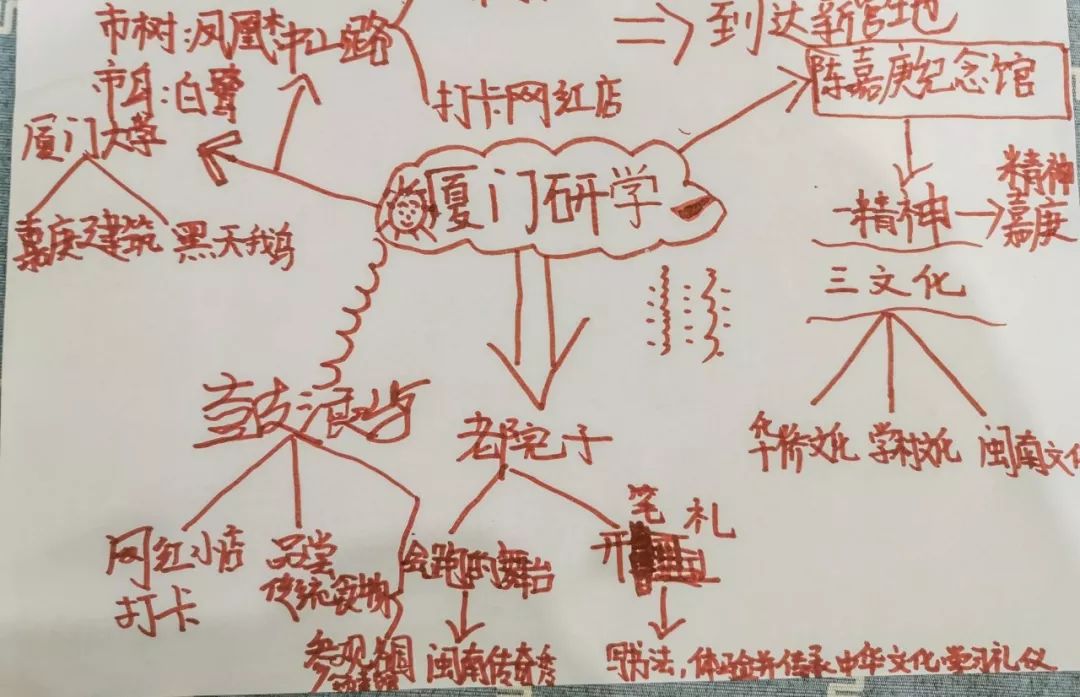 市树:凤凰木
中山路
到达新营地
市鸟:白鹭
打卡网红店
陈嘉庚纪念馆
厦门大学
厦门研学
嘉庚建筑
黑天鹅
一精神
精神
嘉庚
三文化
鼓浪屿
老院子
华侨文化
学村文化
闽南文化
网红小店
打卡
品尝
传统食物
会跑的舞台
开笔礼
参观
闽南传奇秀
写书法,体验并传承中华文化学习礼仪